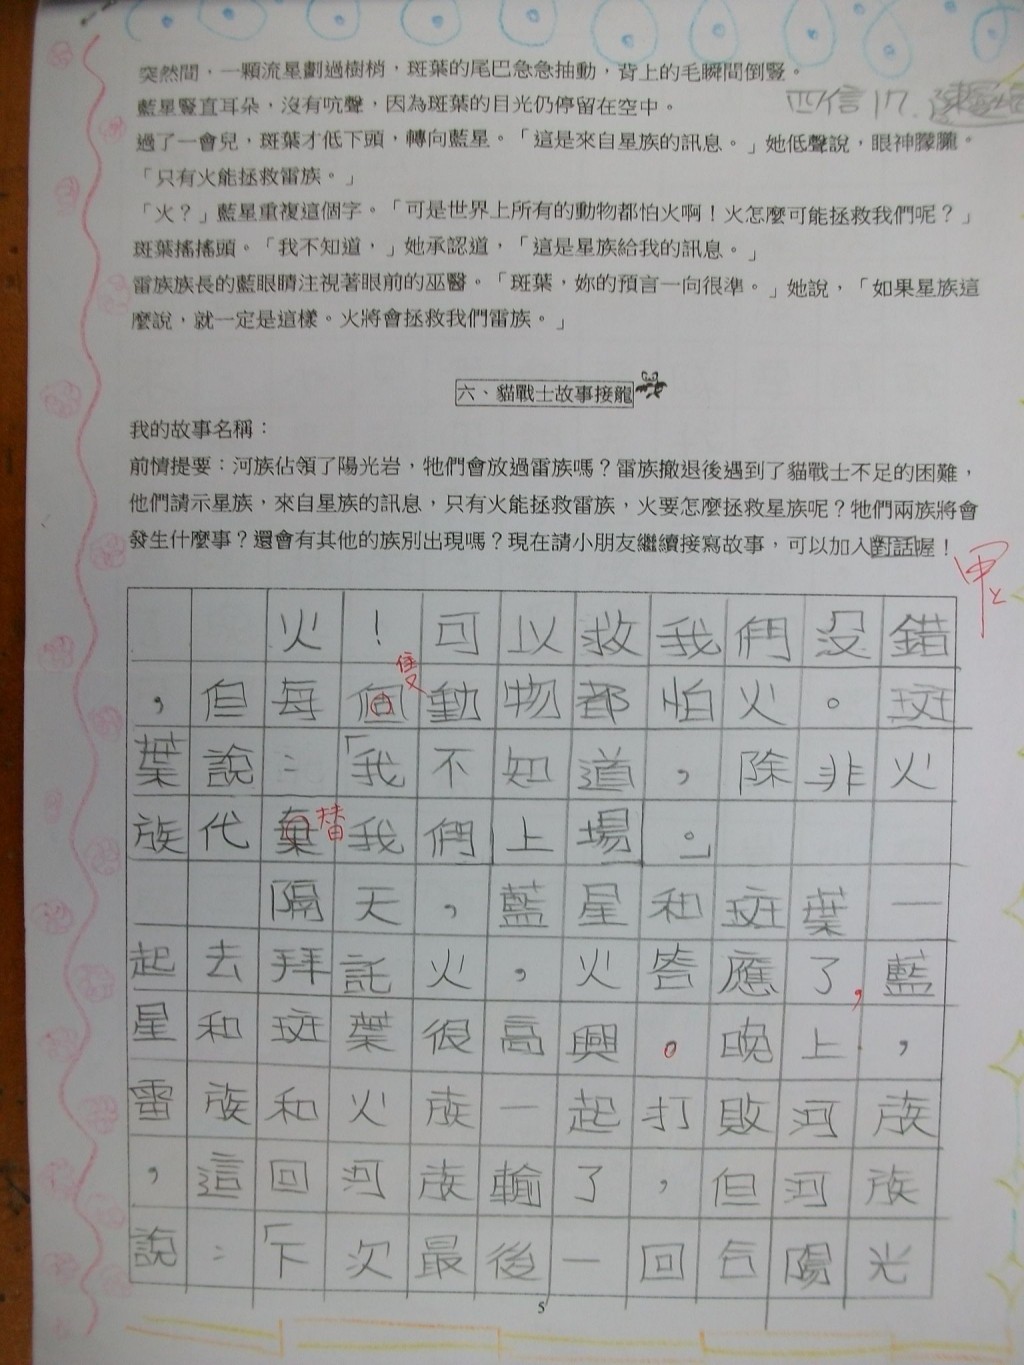 突然間，一顆流星劃過樹梢，斑葉的尾巴急急抽動，背上的毛瞬間倒豎。
藍星豎直耳朵，沒有吭聲，因為斑葉的目光仍停留在空中。
四信17.
過了一會兒，斑葉才低下頭，轉向藍星。「這是來自星族的訊息。」她低聲說，眼神朦朧。
「只有火能拯救雷族。」
「火？」藍星重複這個字。「可是世界上所有的動物都怕火啊！火怎麼可能拯救我們呢？」
斑葉搖搖頭。「我不知道，」她承認道，「這是星族給我的訊息。」
雷族族長的藍眼睛注視著眼前的巫醫。「斑葉，妳的預言一向很準。」她說，「如果星族這
麼說，就一定是這樣。火將會拯救我們雷族。」
六、貓戰士故事接龍
我的故事名稱：
前情提要：河族佔領了陽光岩，牠們會放過雷族嗎？雷族撤退後遇到了貓戰士不足的困難，
他們請示星族，來自星族的訊息，只有火能拯救雷族，火要怎麼拯救星族呢？牠們兩族將會
發生什麼事？還會有其他的族別出現嗎？現在請小朋友繼續接寫故事，可以加入對話喔！
甲上
火！可以救我們沒錯
，但每個隻動物都怕火。斑
葉說：「我不知道，除非火
族代替我們上場。」
隔天，藍星和斑葉一
起去拜託火，火答應了，藍
星和斑葉很高興。晚上，
雷族和火族一起打敗河族
，這回河族輸了，但河族
說：「下次最後一回合陽光
5